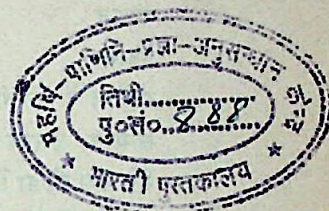 महर्षि-पाणिनि-प्रज्ञा-अनुसन्धान
तिथी..............
पु०सं०..888
* भारती पुस्तकालय *